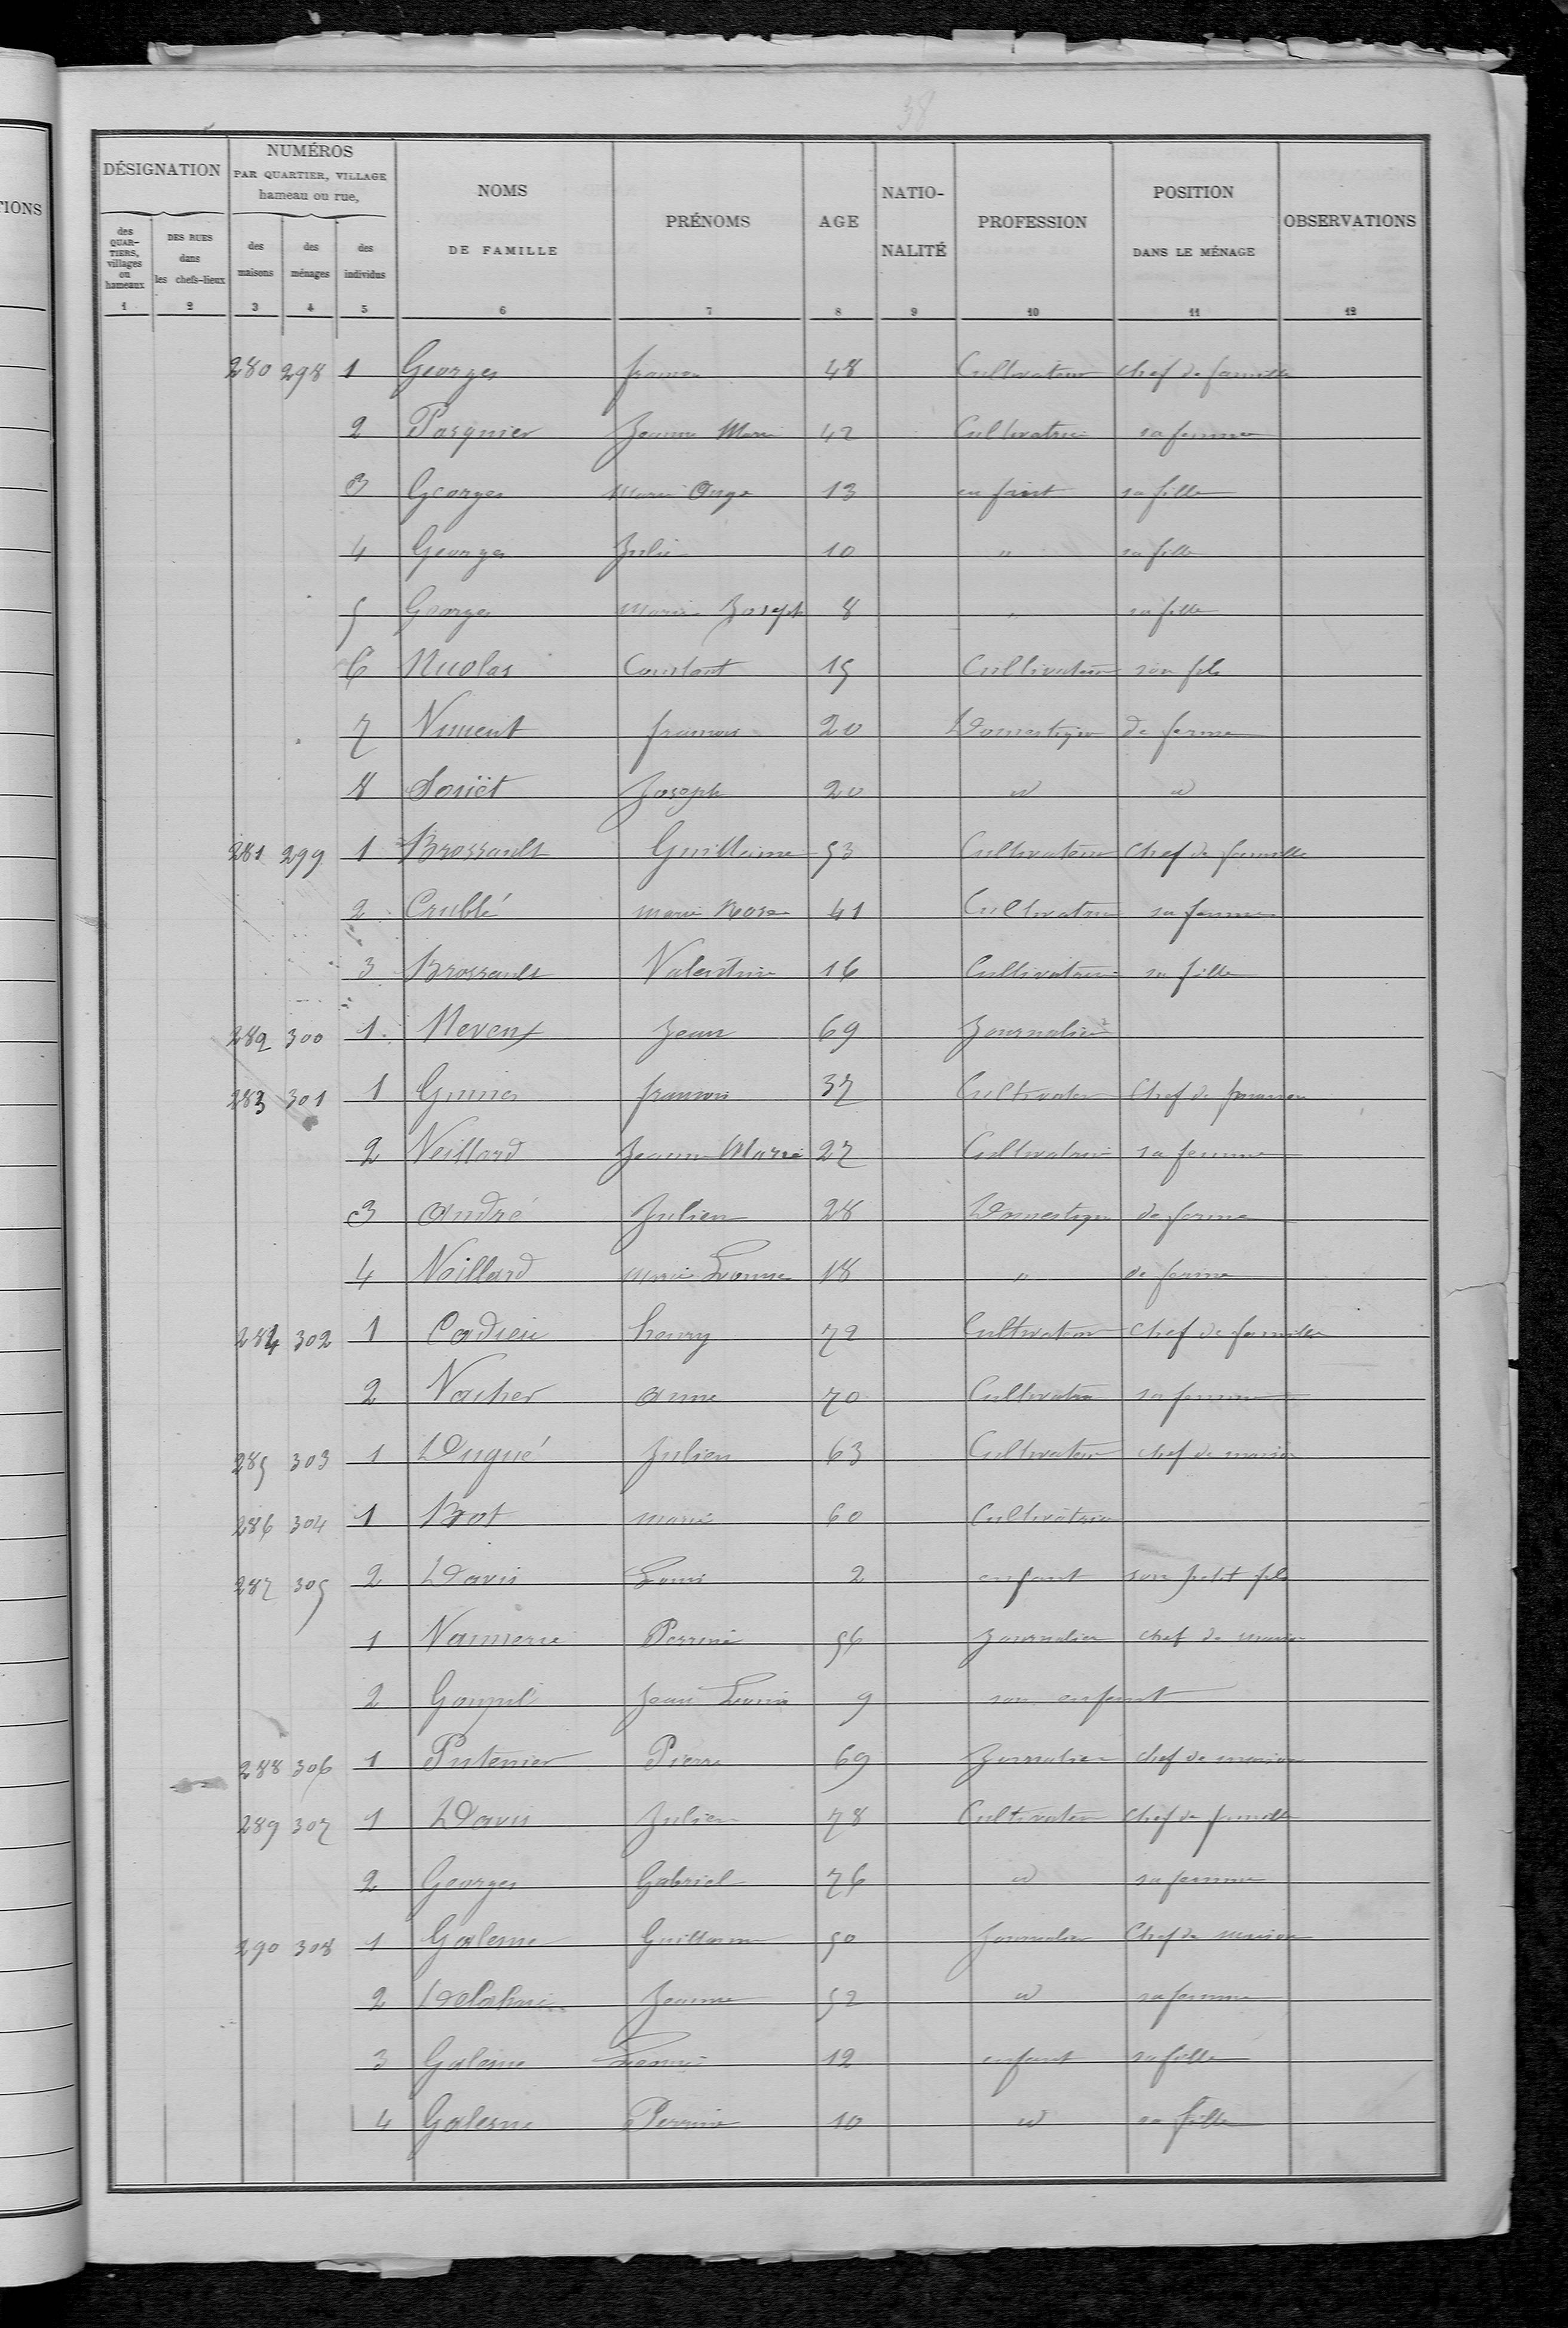 38
TIONS
DÉSIGNATION NUMÉROS PAR QUARTIER, VILLAGE hameau ou rue, NOMS DE FAMILLE PRÉNOMS AGE NATIO-NALITÉ PROFESSION POSITION DANS LE MÉNAGE OBSERVATIONS
des QUAR-TIERS, villages ou hameaux DES RUES dans les chefs-lieux des maisons des ménages des individus
1 2 3 4 5 6 7 8 9 10 11 12
280 298 1 Georges 48 Cultivateur chef de famille
2 Pasquier Jeanne Marie 42 Cultivatrice sa femme
3 Georges Marie Ange 13 enfant sa fille
4 Georges Julie 10 " sa fille
5 Georges Marie Joseph 8 " sa fille
6 Nicolas Constant 15 Cultivateur son fils
7 Vincent francois 20 Domestique de ferme
8 Souët Joseph 20 id id
281 299 1 Brossault Guillaume 53 Cultivateur Chef de famille
2 Crublé marie Rose 41 Cultivatrice sa femme
3 Brossault Valentine 16 Cultivatrice sa fille
282 300 1 Neveux Jean 69 Journalier
283 301 1 francois 37 Cultivateur Chef de
2 Veillard Jeanne Marie 27 Cultivatrice sa femme
3 André Julien 28 Domestique de ferme
4 Veillard Marie 18 " de ferme
284 302 1 Cadieu henry 72 Cultivateur Chef de famille
2 Vacher anne 70 Cultivatrice sa femme
285 303 1 Dugué Julien 63 Cultivateur chef de maison
286 304 1 Bot marie 60 Cultivatrice
287 305 2 Davis Louis 2 enfant son petit fils
1 Perrine 56 Journalier chef de maison
2 Jean Louis 9 son enfant
288 306 1 Pierre 69 Journalier chef de maison
289 307 1 Davis Julien 78 Cultivateur Chef de famille
2 Georges Gabriel 76 id sa femme
290 308 1 Galesne Guillaume 50 Journalier Chef de maison
2 Jeanne 52 id sa femme
3 Galesne 12 enfant sa fille
4 Galesne Perrine 10 id sa fille